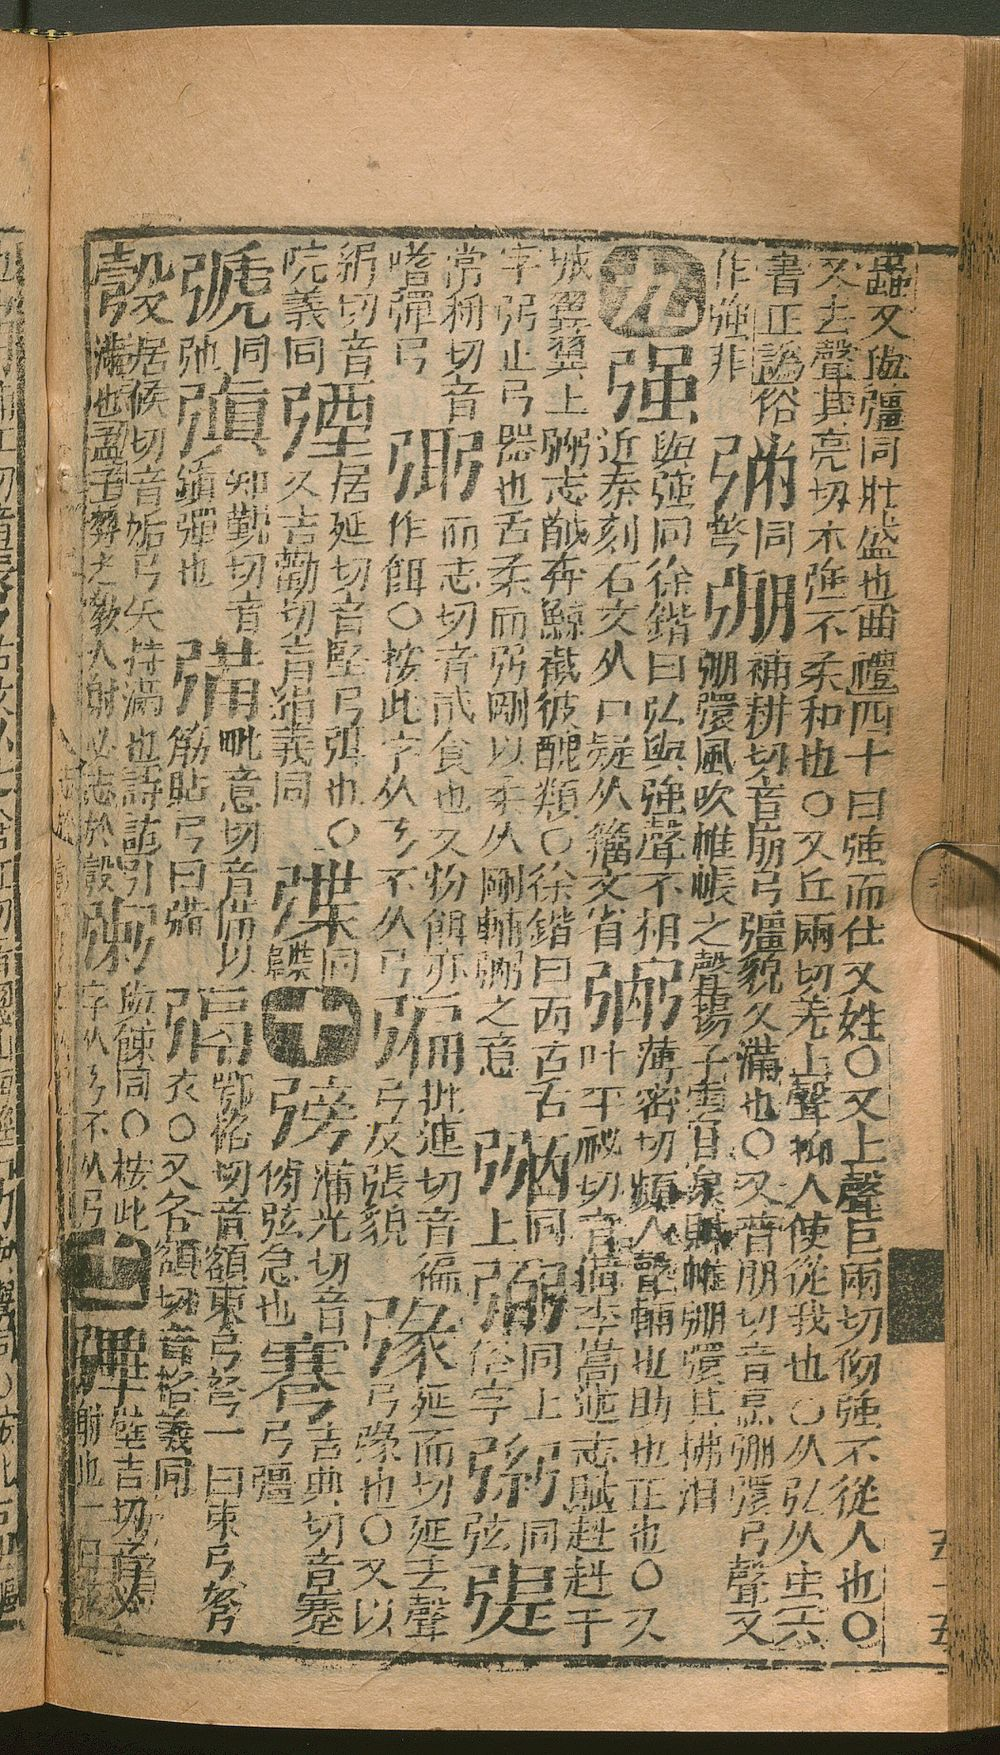 蟲又與彊同壯盛也曲禮四十曰強而仕又姓〇又上聲巨兩切倔強不從人也〇
又去聲其亮切木強不柔和也〇又丘兩切羌上聲抑人使從我也〇从弘从虫六
書正譌俗
作強非
彌
同
弩
弸
補耕切音崩弓彊貌又滿也〇又普朋切音烹弸彋弓聲又
弸彋風吹帷帳之聲揚子雲甘泉賦帷弸彋其拂汨
九
强
與強同徐鍇曰弘與強聲不相
近秦刻石文从口疑从籀文省
弼
薄密切頻入聲輔也助也正也〇又
叶平祕切音備李嵩述志賦赳赳干
城翼翼上弼志馘奔鯨截彼醜類〇徐鍇曰㐁古舌
字弼止弓器也舌柔而弼剛以柔从剛輔弼之意
弻
同
上
弼
同上
俗字
弜
同
弦
弽
常稱切音
嗜彈弓
弬
而志切音貳食也又粉餌亦
作餌〇按此字从丂不从弓
㣂
批連切音徧
弓反張貌
㣄
延而切延去聲
弓緣也〇又以
絹切音
院義同
㢾
居延切音堅弓弭也〇
又吉勸切音絹義同
弽
同
韘
十
㣃
蒲光切音傍
弦急也
㢿
吉典切音蹇
弓彊
號
同
弛
㣀
知觀切音
縝彈也
㣁
毗意切音備以
筋貼弓曰㣁
鄂佫切音額束弓弩一曰束弓弩
衣〇又各額切音格義同
彀
居候切音姤弓矢持滿也詩誥引
滿也孟子羿之教人射必志於彀
㣇
與餗同〇按此
字从丂不从弓
十一
彃
壁吉切音必
射也一曰弦